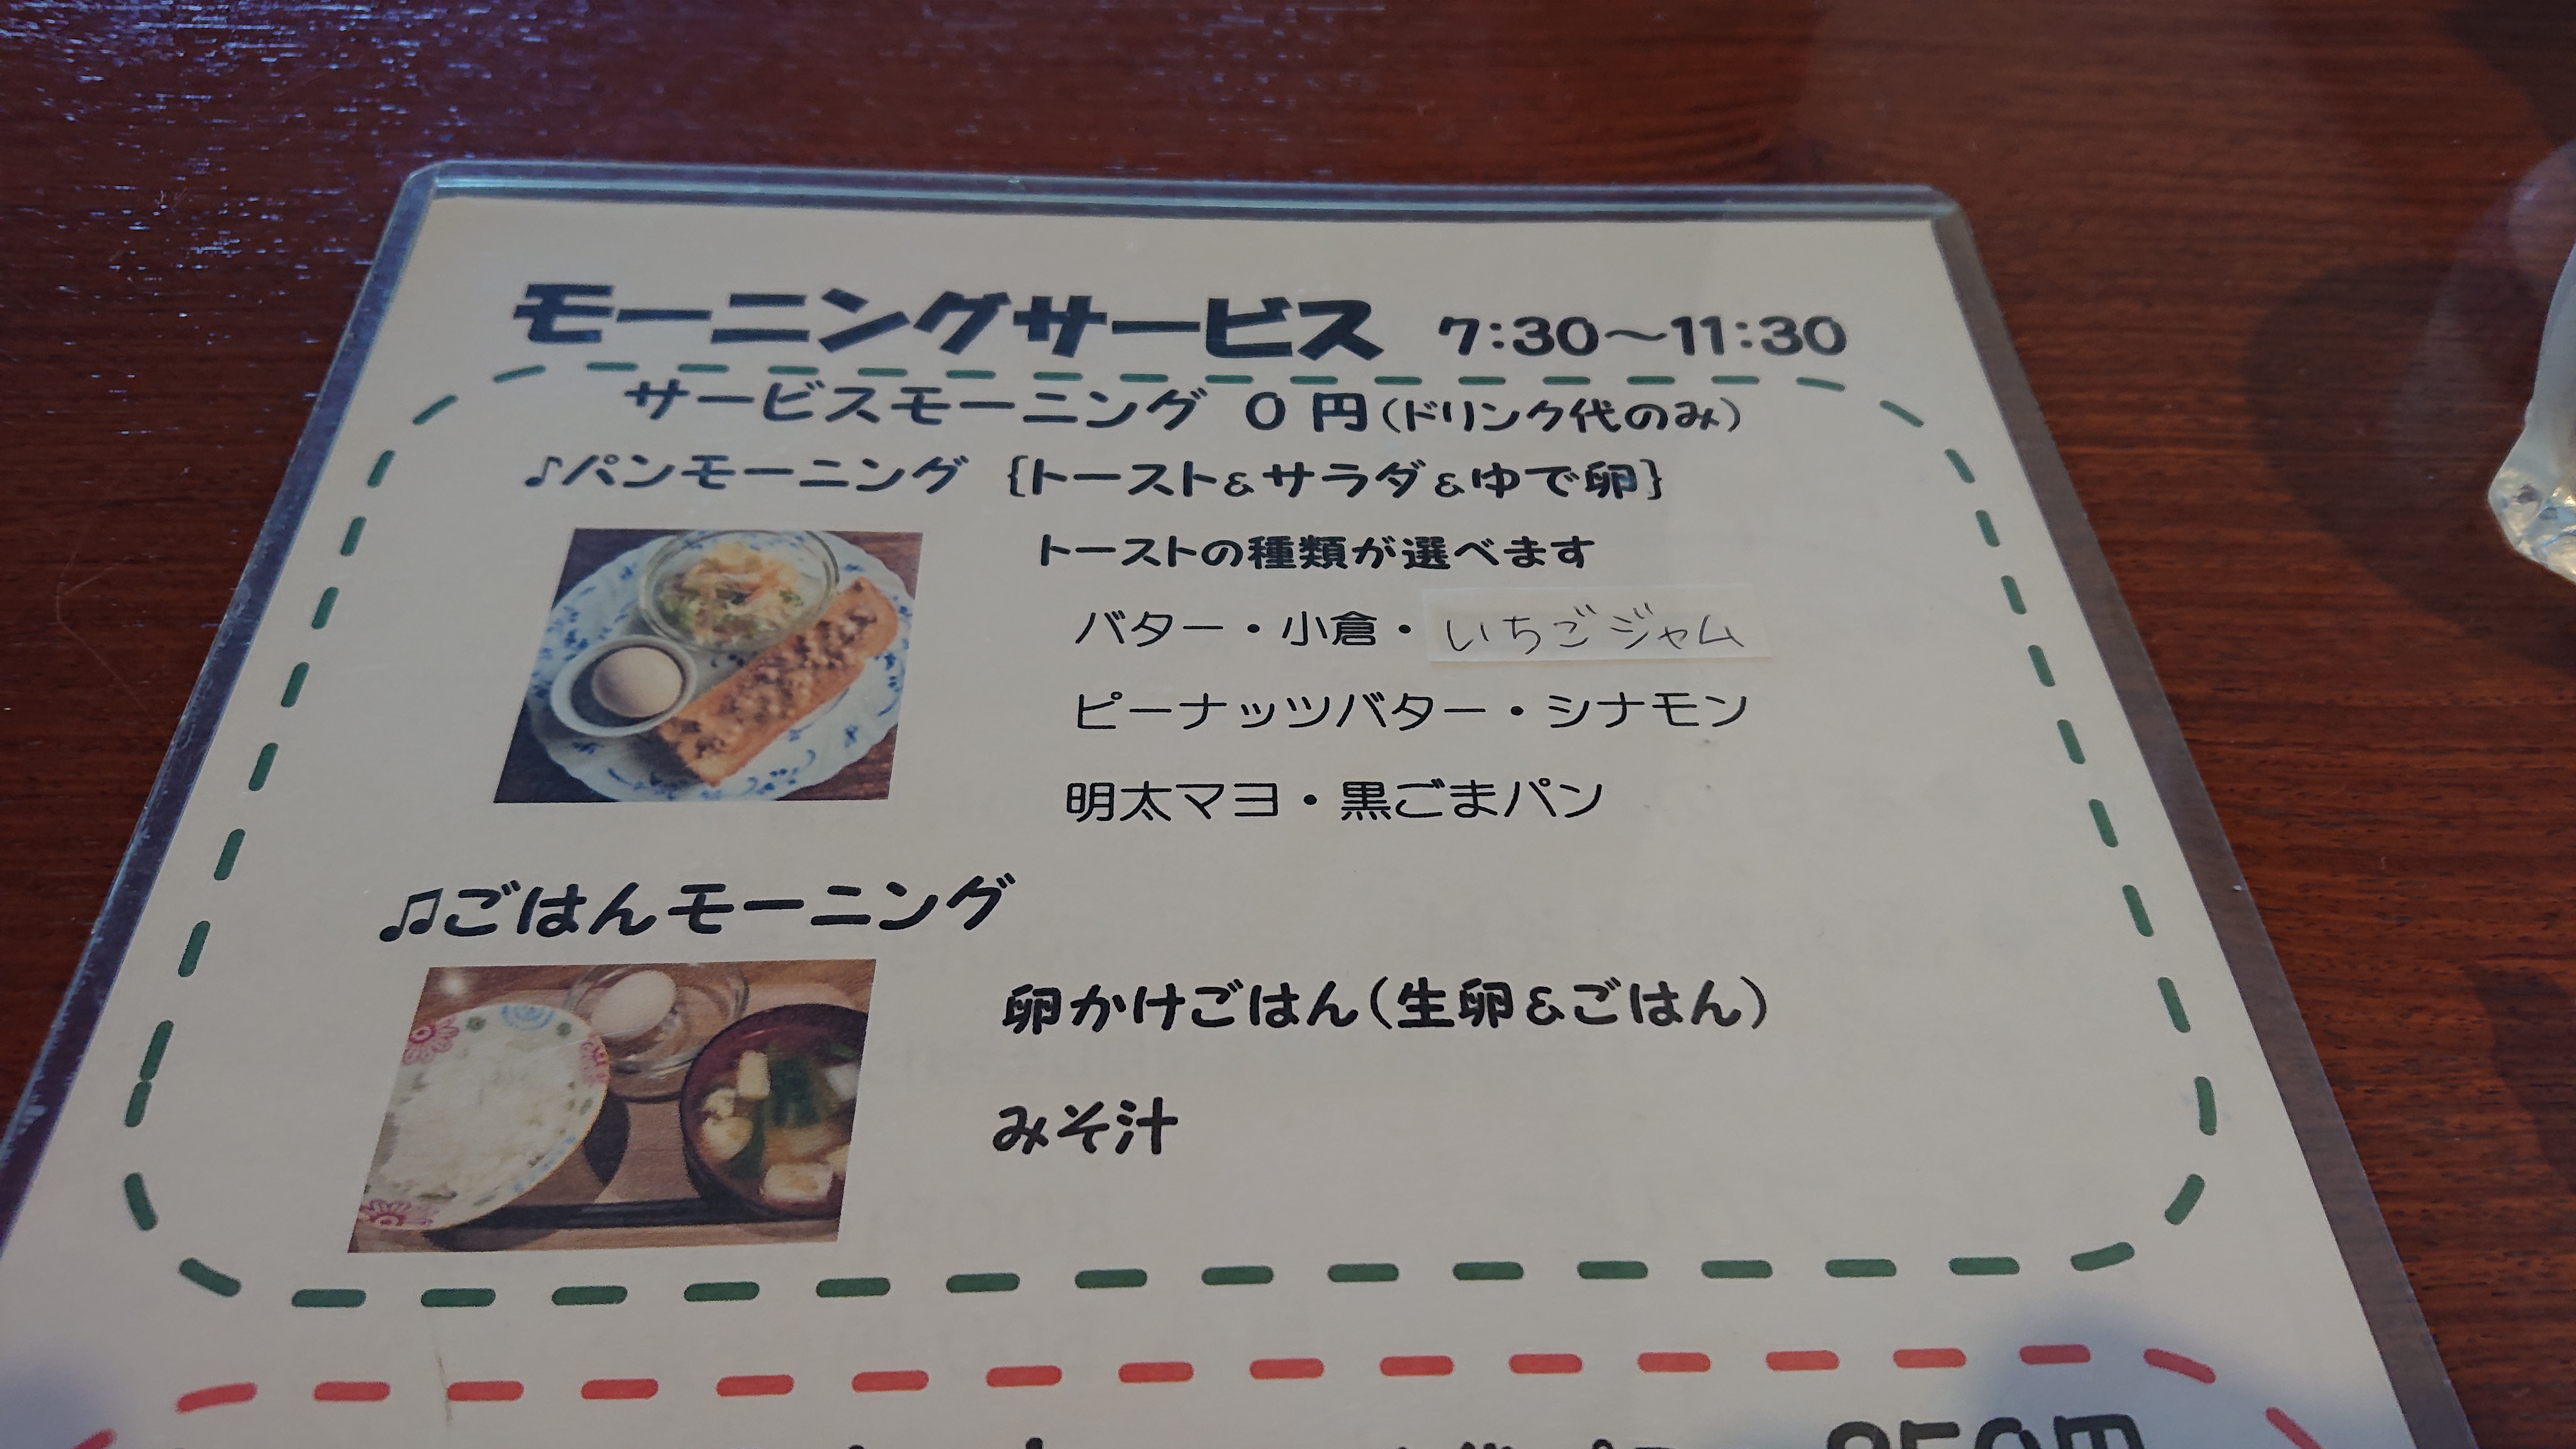 モーニングサービス 7:30～11:30
サービスモーニング 0円(ドリンク代のみ)
♪パンモーニング {トースト&サラダ&ゆで卵}
トーストの種類が選べます
バター・小倉・いちごジャム
ピーナッツバター・シナモン
明太マヨ・黒ごまパン
♫ごはんモーニング
卵かけごはん(生卵&ごはん)
みそ汁